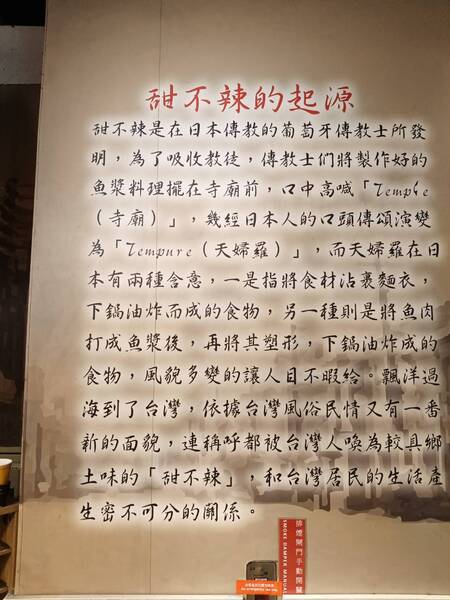 甜不辣的起源
甜不辣是在日本傳教的葡萄牙傳教士所發
明，為了吸收教徒，傳教士們將製作好的
魚漿料理擺在寺廟前，口中高喊「Temple
（寺廟）」，幾經日本人的口頭傳頌演變
為「Tempure（天婦羅）」，而天婦羅在日
本有兩種含意，一是指將食材沾裹麵衣，
下鍋油炸而成的食物，另一種則是將魚肉
打成魚漿後，再將其塑形，下鍋油炸成的
食物，風貌多變的讓人目不暇給。飄洋過
海到了台灣，依據台灣風俗民情又有一番
新的面貌，連稱呼都被台灣人喚為較具鄉
土味的「甜不辣」，和台灣居民的生活產
生密不可分的關係。
排煙閘門手動開關
SMOKE DAMPER MANUAL